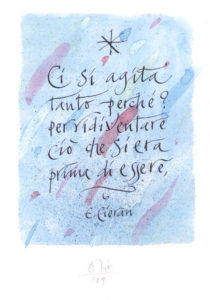 Ci si agita
tanto perché?
per ridiventare
ciò che si era
prima di essere,
E. Cioran